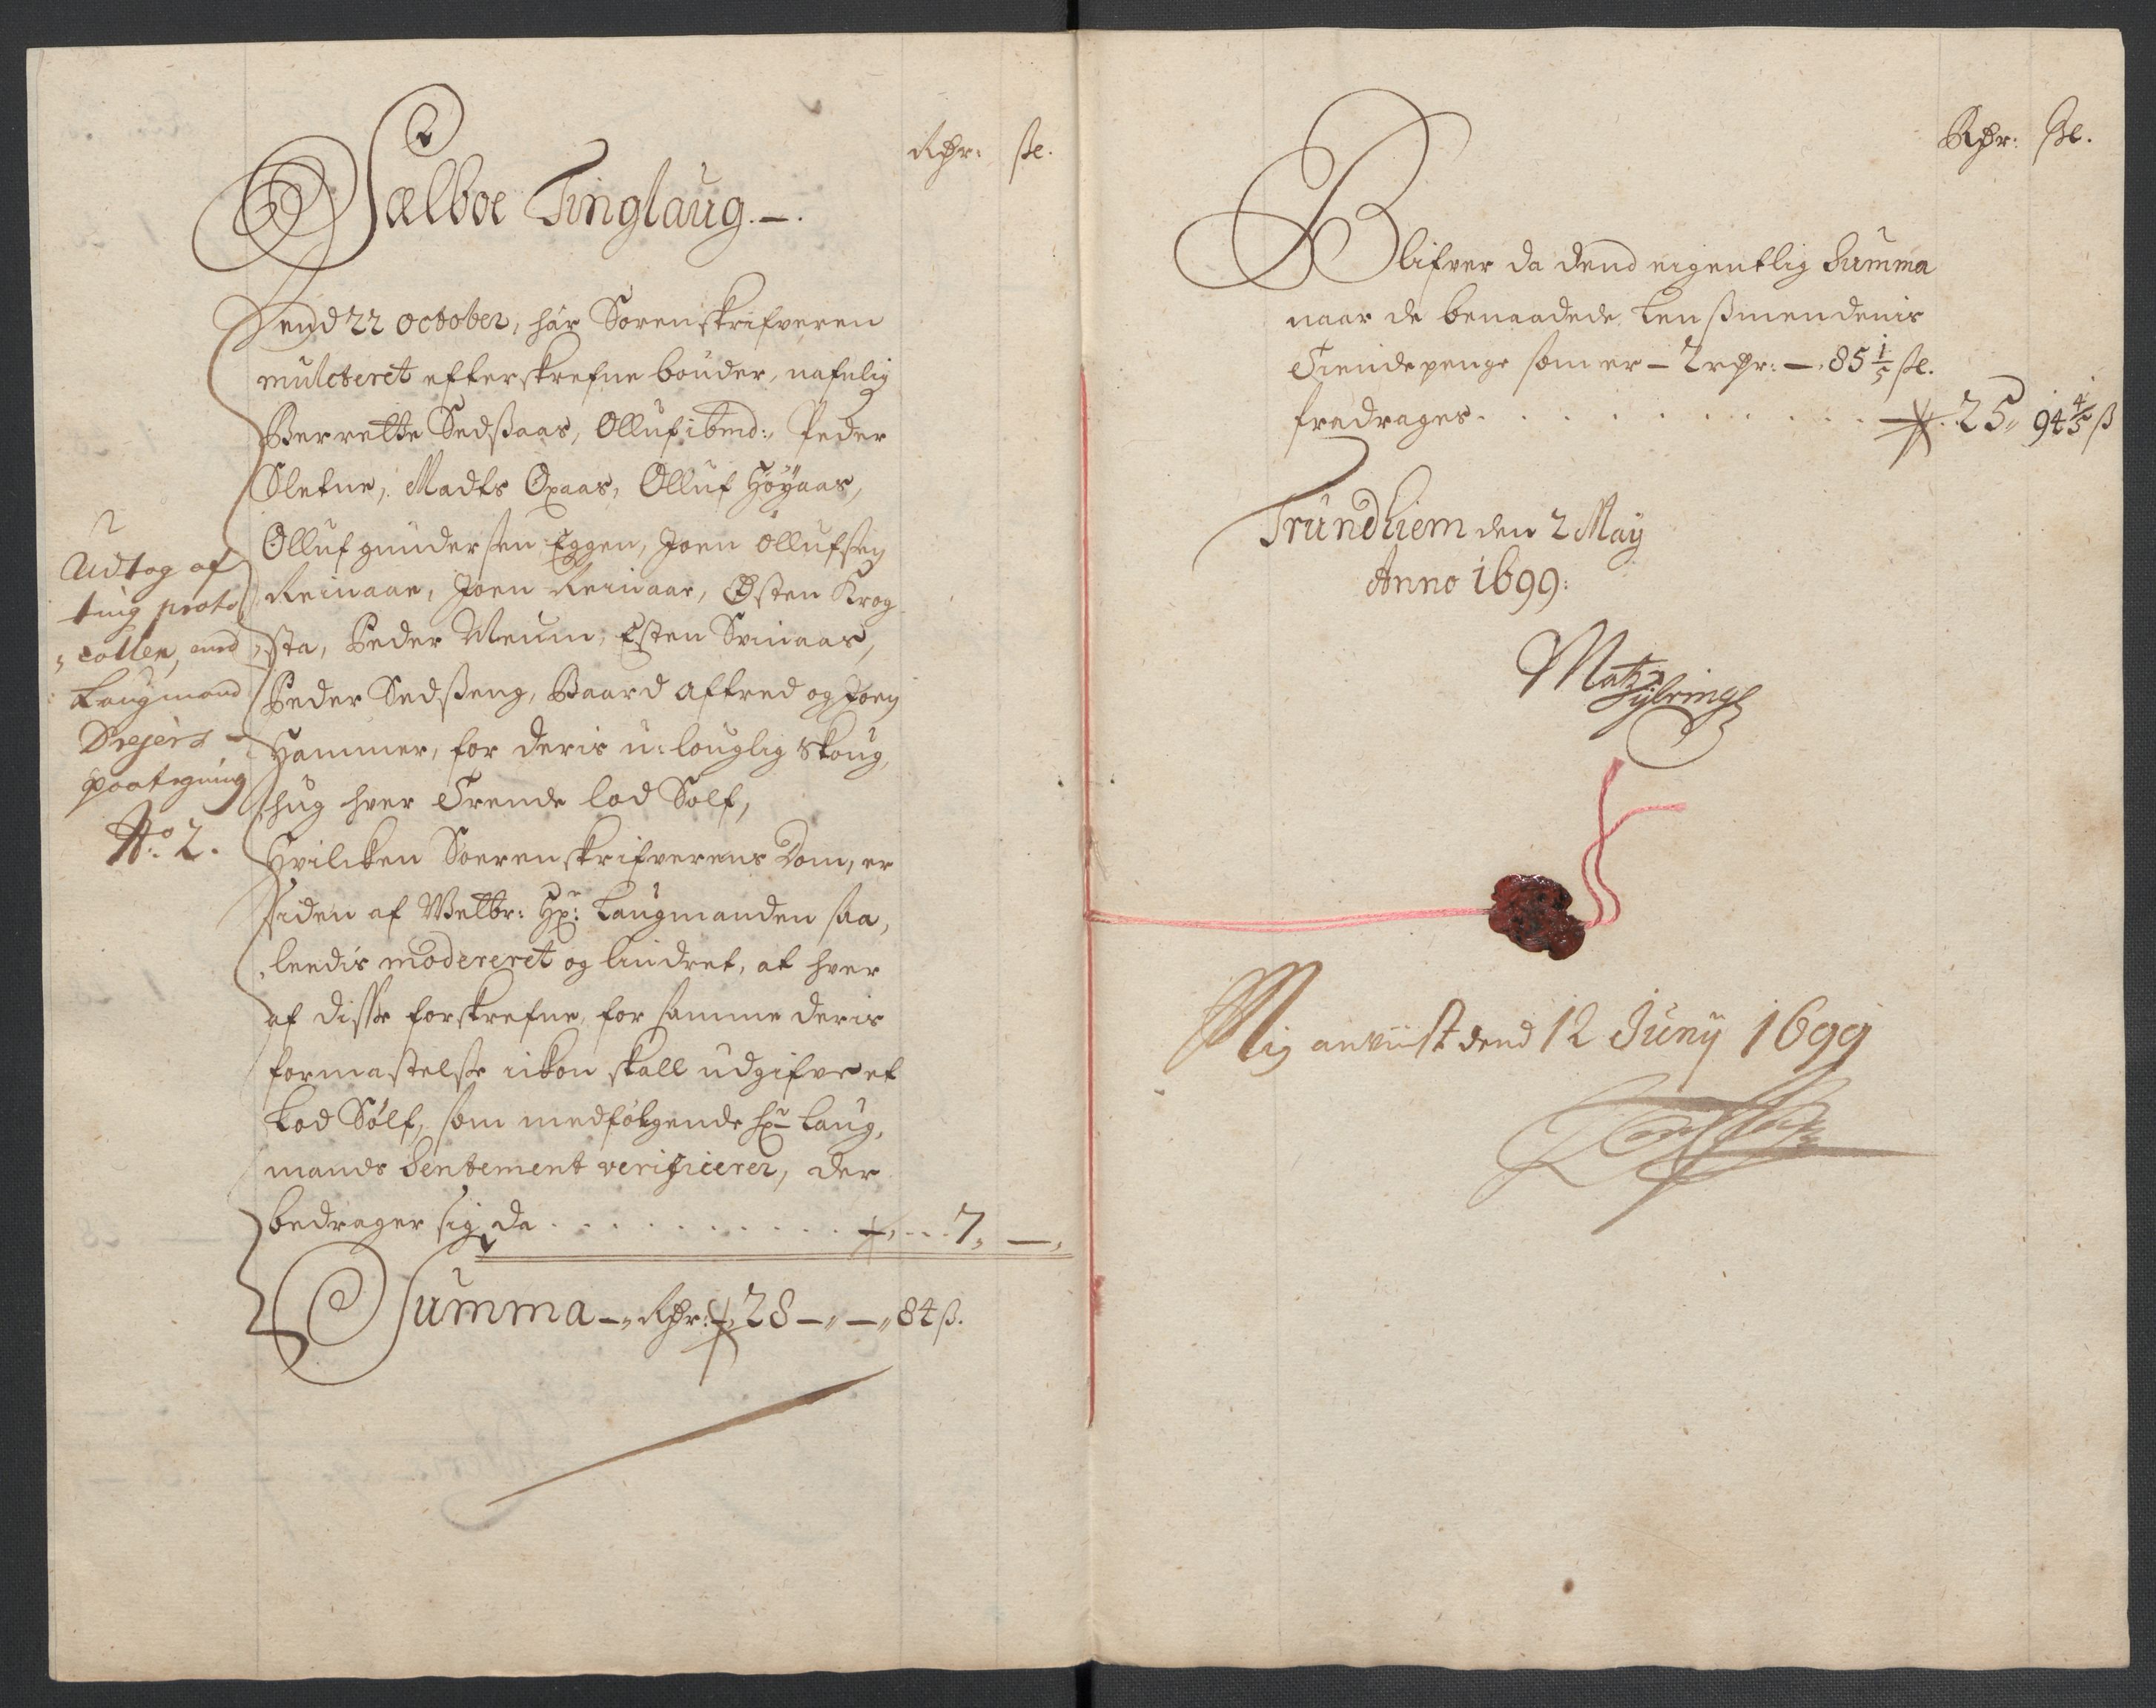 Rdr: ße.
Sælboe Tinglaug.-.
Dend 22 October, har Sorenskrifveren
mulcteret efterskrefne bønder, nafnlig
Berrette Sedßaas, Olluf ibmd:, Peder
Sletne, Madts Oxaas, Olluf Høÿaas,
Olluf gunderßen Eggen, Joen ollufsen
Reinaae, Joen Reinaae, Østen Krog
sta, Peder Meum, Esten Svinaas,
Peder Sedßeng, Baard aftred og Joen
Hammer, for deris u-louglig skoug,
hug hver Trende lod Sølf,
Hvilcken Soerenskrifverens Dom, er
siden af Welbr: Hr: Laugmanden saa,
leedis modereret og lindret, at hver
af disse forskrefne, for samme deris
formastelse ickon skall udgifve et
Lod Sølf, som medfølgende Hr Laug,
mands Sentement verificerer, der
bedrager sig da . . . . . . . . . . . 7„ —„
Summa —„ Rdr: 28 —„ —„ 84 ß.
Udtog af
ting proto
collen, med
Laugmand
Drejers
paategning
No. 2.
Rdr: ße.
Blifver da dend eigentlig Summa
naar de benaadede Lenßmendenis
Tiendepenge som er – 2 rdr: – 85 1/5 ße.
fradrages . . . . . . . . . . . 25„ 94 4/5 ß
Trundhiem den 2 Maÿ
Anno 1699:
Mig anviist dend 12 Junÿ 1699